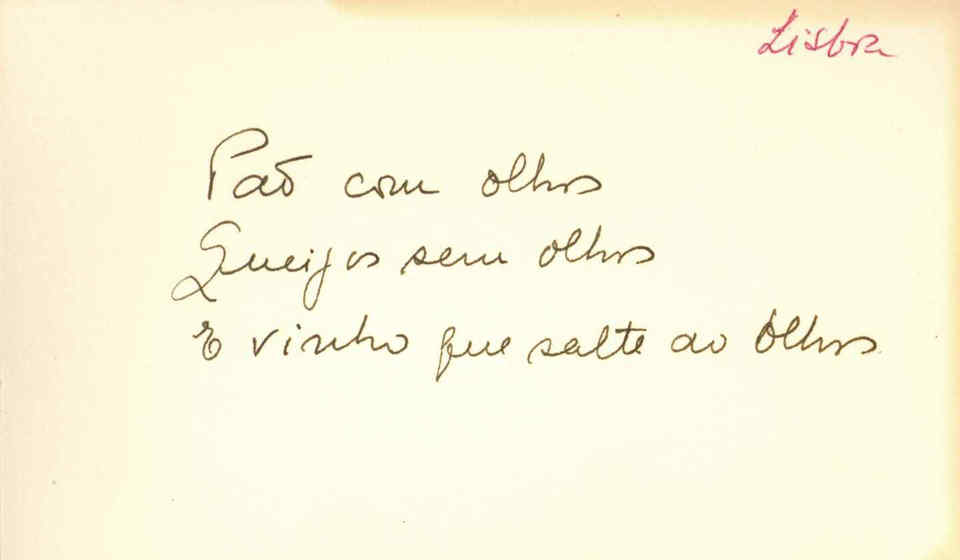 Lisboa
Pão com olhos
Queijos sem olhos
E vinho que salte ao olhos